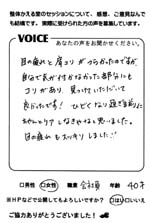 整体かえる堂のセッションについて、感想、ご意見なんで
も結構です。実際に受けられた方の声を募集しています。
VOICE
あなたの声をお聞かせください。
目の疲れと肩コリがつらかったのですが、
自分で気が付かなかった部分にも
コリがあり、見つけていただいて
良かったです! ひどくなり過ぎる前に
ちゃんとケアしなきゃなと思いました。
目の疲れもスッキリしました
□男性 ☑女性 職業 会社員 年齢 40才
※HPなどで公開してもよろしいですか? はい□いいえ
ご協力ありがとうございました!